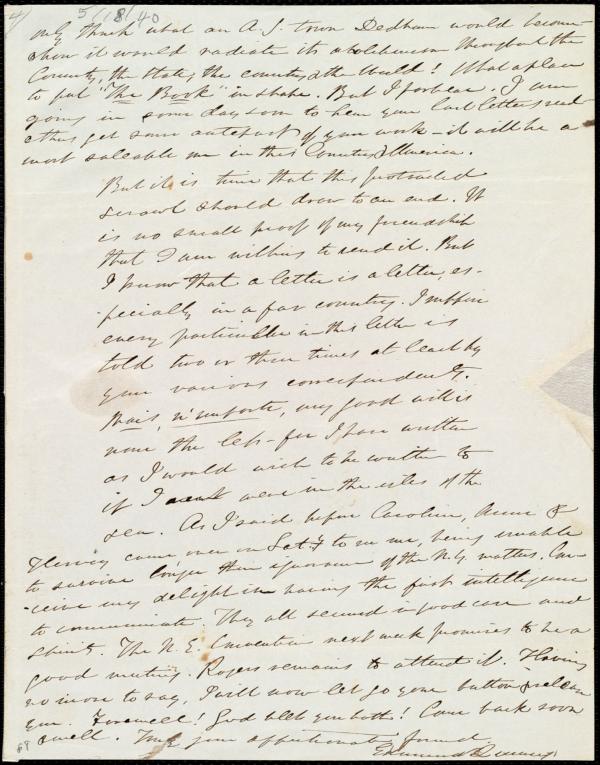 4/
5/18/40
only think what an A.S. town Dedham would become—
how it would radiate its abolitionism throughout the
County, the State, the country & the World! What a place
to put "The Book" in shape. But I forbear. I am
going in some day soon to hear your last letters read
& thus get some antepast of your work—it will be a
most saleable one in this Country & America.
But it is time that this protracted
scrawl should draw to an end. It
is no small proof of my friendship
that I am willing to send it. But
I know that a letter is a letter, es-
-pecially in a far country. I suppose
every particular in this letter is
told two or three times at least by
your various correspondents.
Mais, n'importe, my good will is
none the less—for I have written
as I would wish to be written to
if I were in the isles of the
sea. As I said before Caroline, Anne &
Hervey came over on Sat. to see me, being unable
to survive longer their ignorance of the N.Y. matters. Con-
-ceive my delight in having the first intelligence
to communicate. They all seemed in good case and
spirits. The N.E. Convention next week promises to be a
good meeting. Rogers remains to attend it. Having
no more to say, I will now let go your button & release
you. Farewell! God bless you both! Come back soon
& well. Your affectionate friend,
Edmund Quincy